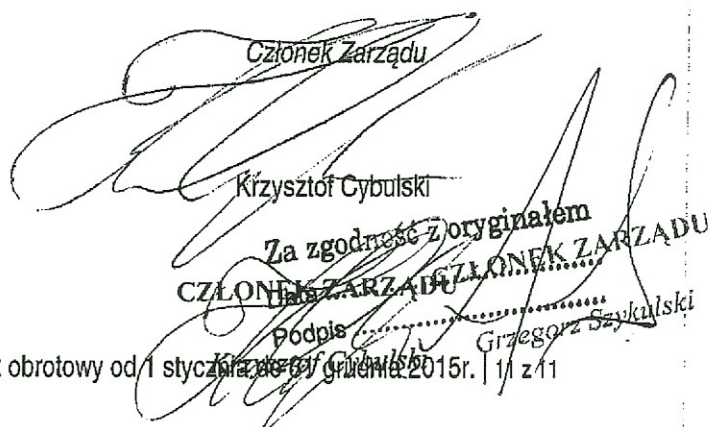 Członek Zarządu
Krzysztof Cybulski
Za zgodność z oryginałem
CZŁONEK ZARZĄDU CZŁONEK ZARZĄDU
Data ....................
Podpis ....................
Krzysztof Cybulski Grzegorz Szykulski
obrotowy od 1 stycznia do 31 grudnia 2015r. | 11 z 11